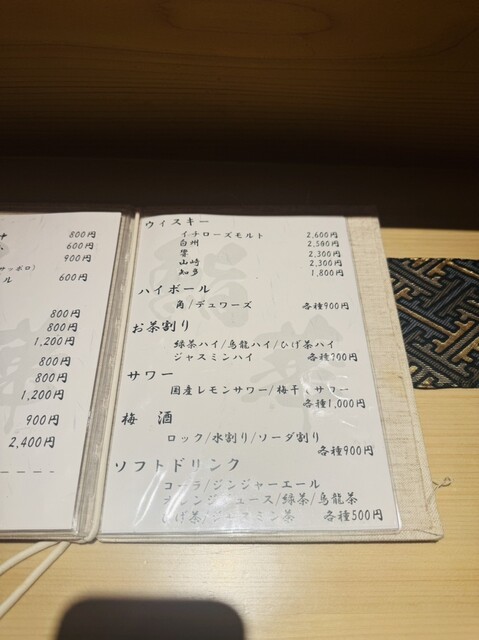 800円
600円
900円
600円
800円
800円
1,200円
800円
800円
1,200円
900円
2,400円
ウィスキー
イチローズモルト 2,600円
白州 2,500円
響 2,300円
山崎 2,300円
知多 1,800円
ハイボール
角/デュワーズ 各種900円
お茶割り
緑茶ハイ/烏龍ハイ/ひげ茶ハイ
ジャスミンハイ 各種700円
サワー
国産レモンサワー/梅干しサワー
各種1,000円
梅 酒
ロック/水割り/ソーダ割り
各種900円
ソフトドリンク
コーラ/ジンジャーエール
オレンジジュース/緑茶/烏龍茶
ひげ茶/ジャスミン茶 各種500円